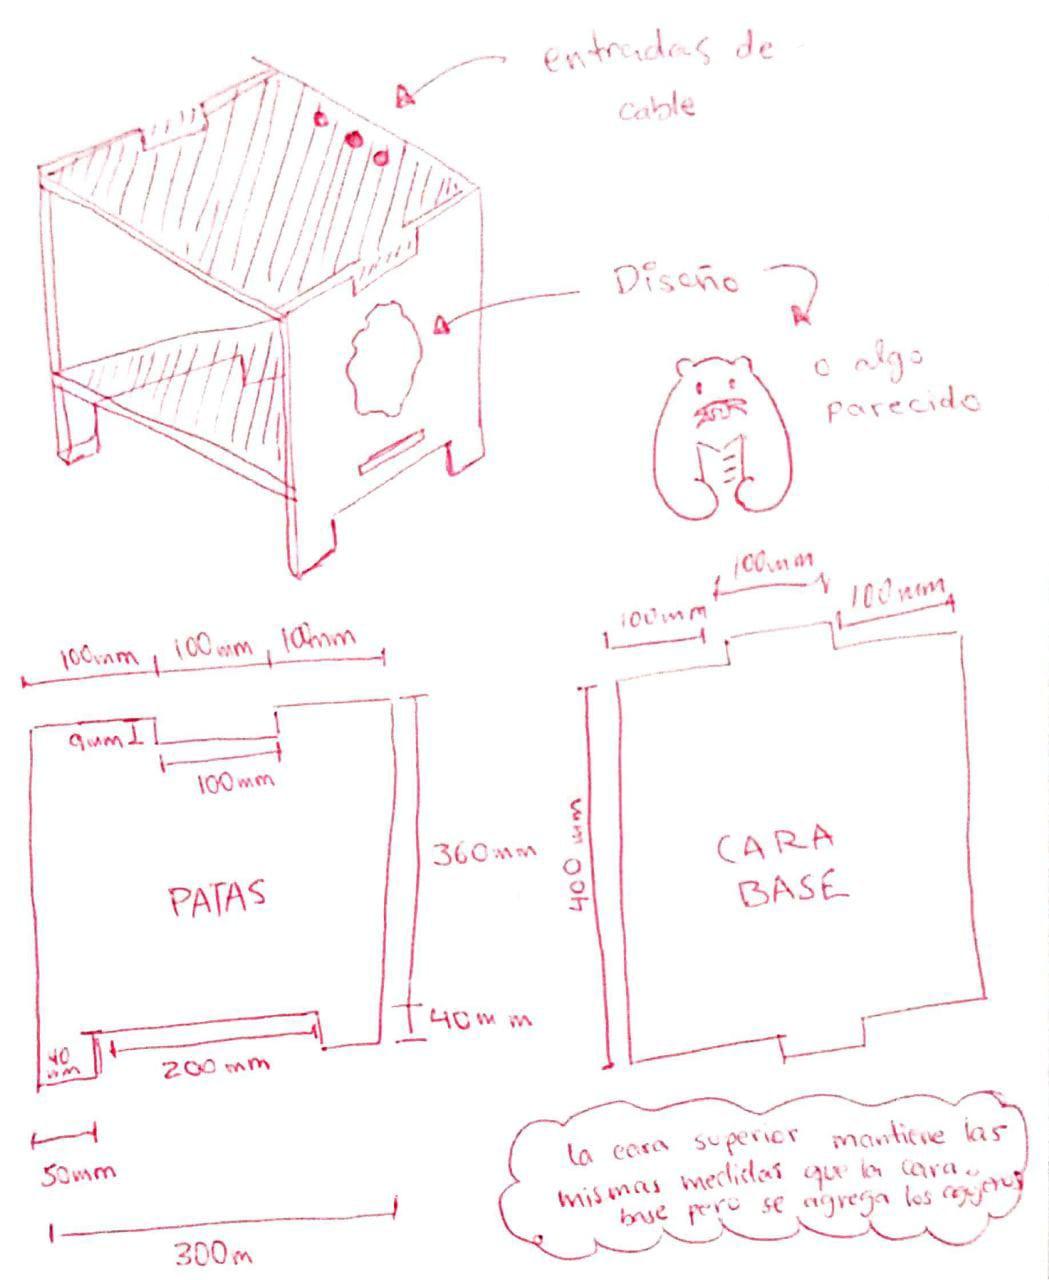 entradas de
cable
Diseño
o algo
parecido
100mm
100mm
100mm
100mm
100mm
100mm
9mm
100mm
360mm
400mm
PATAS
CARA
BASE
40mm
40
mm
200mm
50mm
300m
la cara superior mantiene las
mismas medidas que la cara
base pero se agrega los agujeros